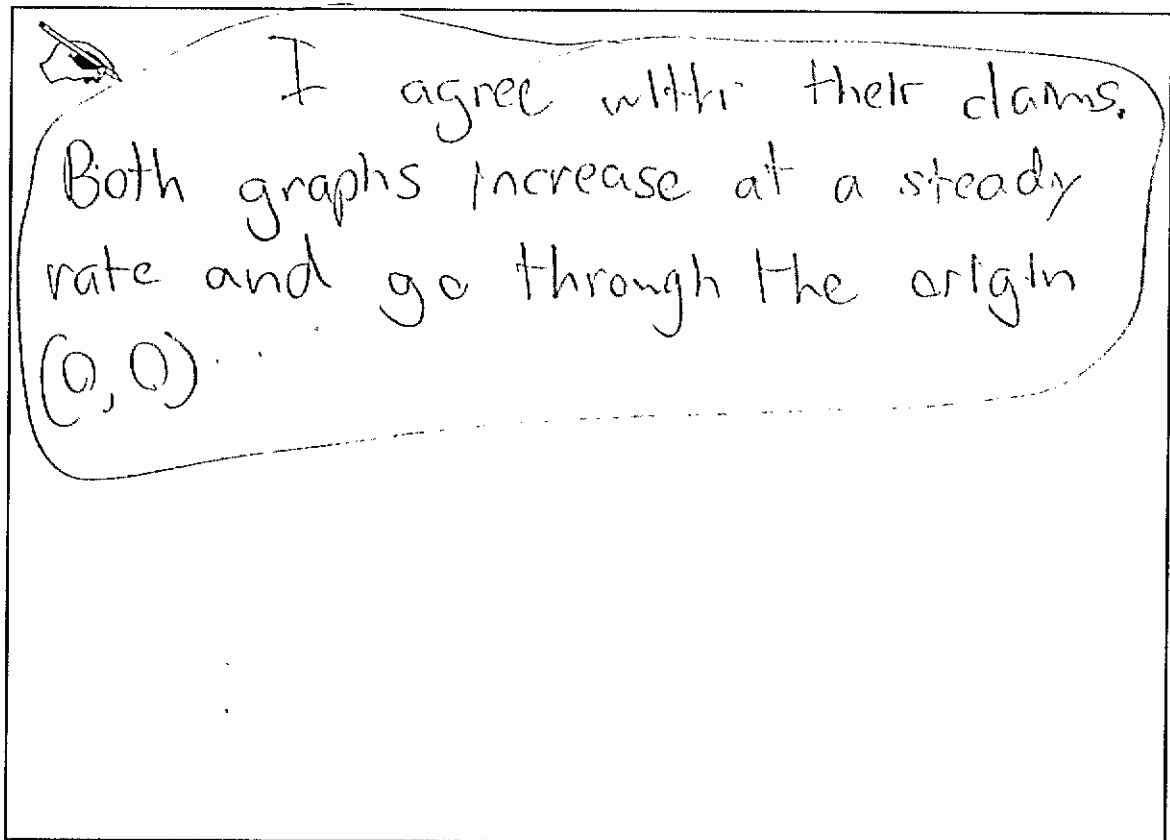 I agree with their claims.
Both graphs increase at a steady
rate and go through the origin
(0,0)